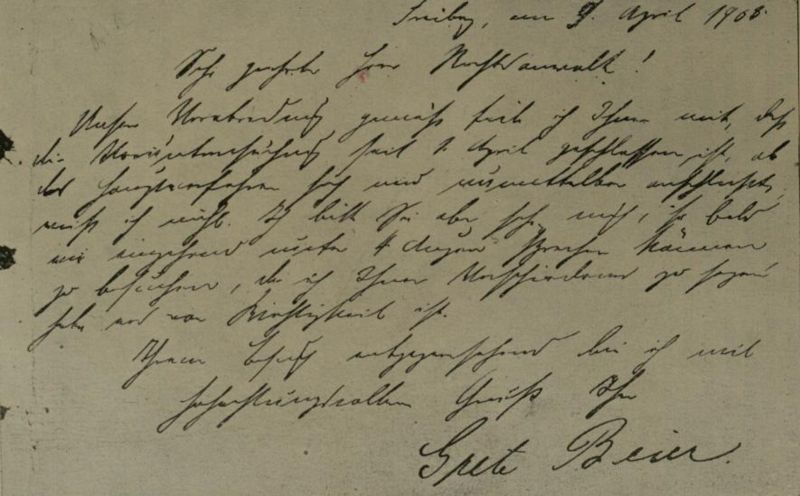 Freiberg, am 9. April 1908
Sehr geehrter Herr Rechtsanwalt!
Unserer Verabredung gemäß teile ich Ihnen mit, daß
die Voruntersuchung seit 1. April geschlossen ist, ob
das Hauptverfahren sich nun unmittelbar anschließt,
weiß ich nicht. Ich bitte Sie aber sehr, mich, so bald
wie eingehend unter 4 Augen sprechen können
zu besuchen, da ich Ihnen Verschiedenes zu sagen
habe was von Wichtigkeit ist.
Ihrem Besuch entgegensehend bin ich mit
hochachtungsvollem Gruß Ihre
Grete Beier.